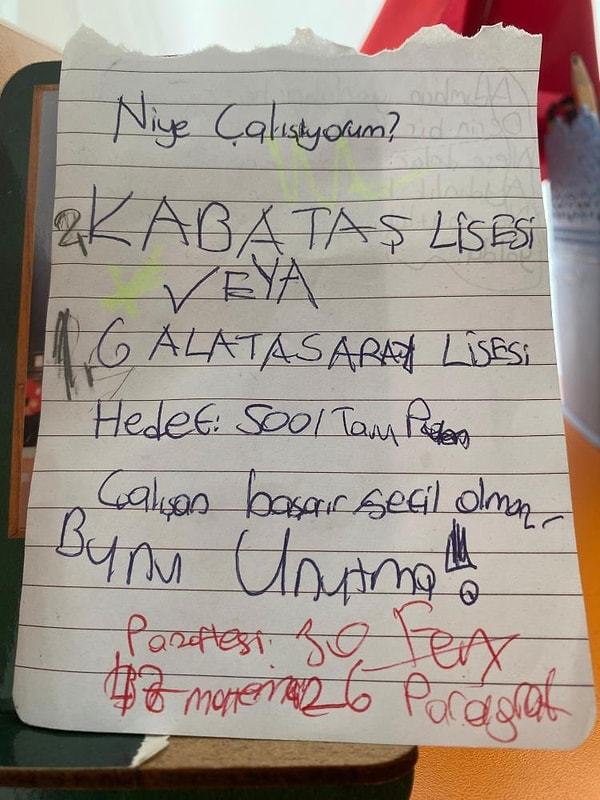 Niye Çalışıyorum?
2, KABATAŞ LİSESİ
VEYA
1, GALATASARAY LİSESİ
Hedef: 500/Tam
Çalışan başarır sefil olmaz
Bunu Unutma!!!
Pazartesi: 30 Fen
26 Paragraf